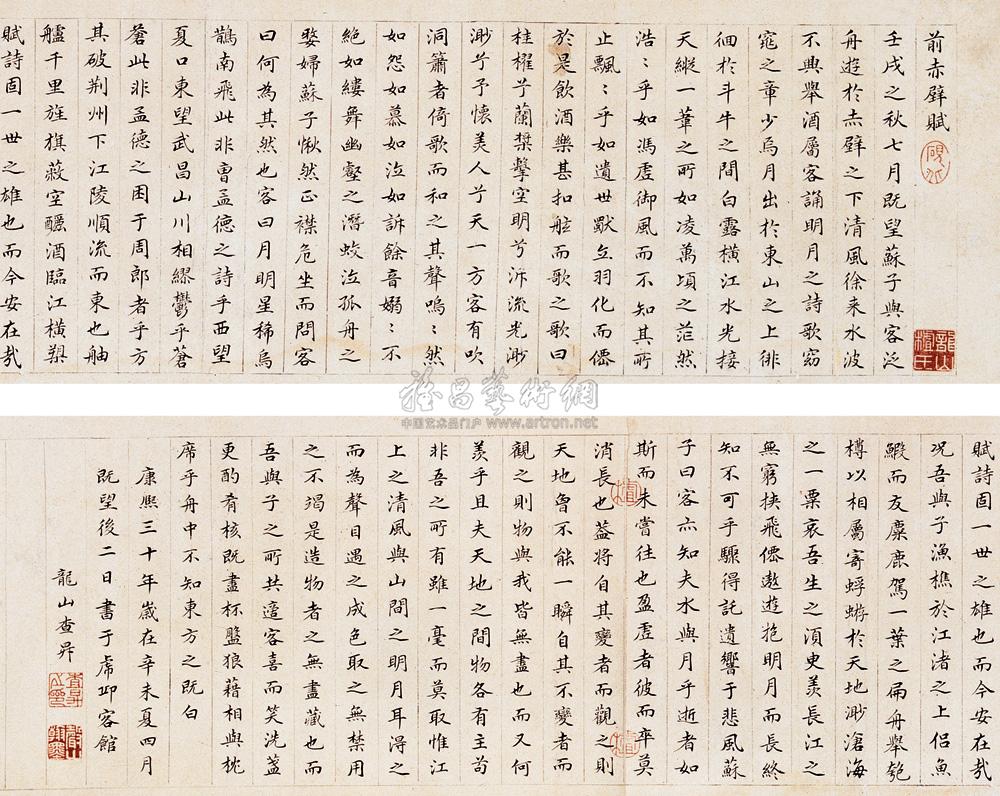 前赤壁賦
壬戌之秋七月既望蘇子與客泛
舟遊於赤壁之下清風徐来水波
不興舉酒屬客誦明月之詩歌窈
窕之章少焉月出於東山之上徘
徊於斗牛之間白露橫江水光接
天縱一葦之所如凌萬頃之茫然
浩〻乎如馮虛御風而不知其所
止飄〻乎如遺世獨立羽化而僊
於是飲酒樂甚扣舷而歌之歌曰
桂櫂兮蘭槳擊空明兮泝流光渺
渺兮予懷美人兮天一方客有吹
洞簫者倚歌而和之其聲嗚〻然
如怨如慕如泣如訴餘音嫋〻不
絕如縷舞幽壑之潛蛟泣孤舟之
嫠婦蘇子愀然正襟危坐而問客
曰何為其然也客曰月明星稀烏
鵲南飛此非曹孟德之詩乎西望
夏口東望武昌山川相繆鬱乎蒼
蒼此非孟德之困于周郎者乎方
其破荆州下江陵順流而東也舳
艫千里旌旗蔽空釃酒臨江橫槊
賦詩固一世之雄也而今安在哉
雅昌藝術網
中国艺术品门户 www.artron.net
賦詩固一世之雄也而今安在哉
況吾與子漁樵於江渚之上侶魚
鰕而友麋鹿駕一葉之扁舟舉匏
樽以相屬寄蜉蝣於天地渺滄海
之一粟哀吾生之須臾羨長江之
無窮挾飛僊遨遊抱明月而長終
知不可乎驟得託遺響于悲風蘇
子曰客亦知夫水與月乎逝者如
斯而未嘗往也盈虛者彼而卒莫
消長也葢將自其變者而觀之則
天地曾不能一瞬自其不變者而
觀之則物與我皆無盡也而又何
羨乎且夫天地之間物各有主苟
非吾之所有雖一毫而莫取惟江
上之清風與山間之明月耳得之
而為聲目遇之成色取之無禁用
之不竭是造物者之無盡藏也而
吾與子之所共適客喜而笑洗盞
更酌肴核既盡杯盤狼藉相與枕
席乎舟中不知東方之既白
康熙三十年歲在辛未夏四月
既望後二日書于虎邱客館
龍山查昇